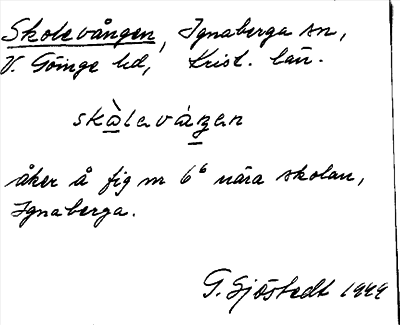 Skolevången, Ignaberga sn,
V. Göinge hd, Krist. län.
skàlavázan
åker å fig m 6⁶ nära skolan,
Ignaberga.
G. Sjöstedt 1949